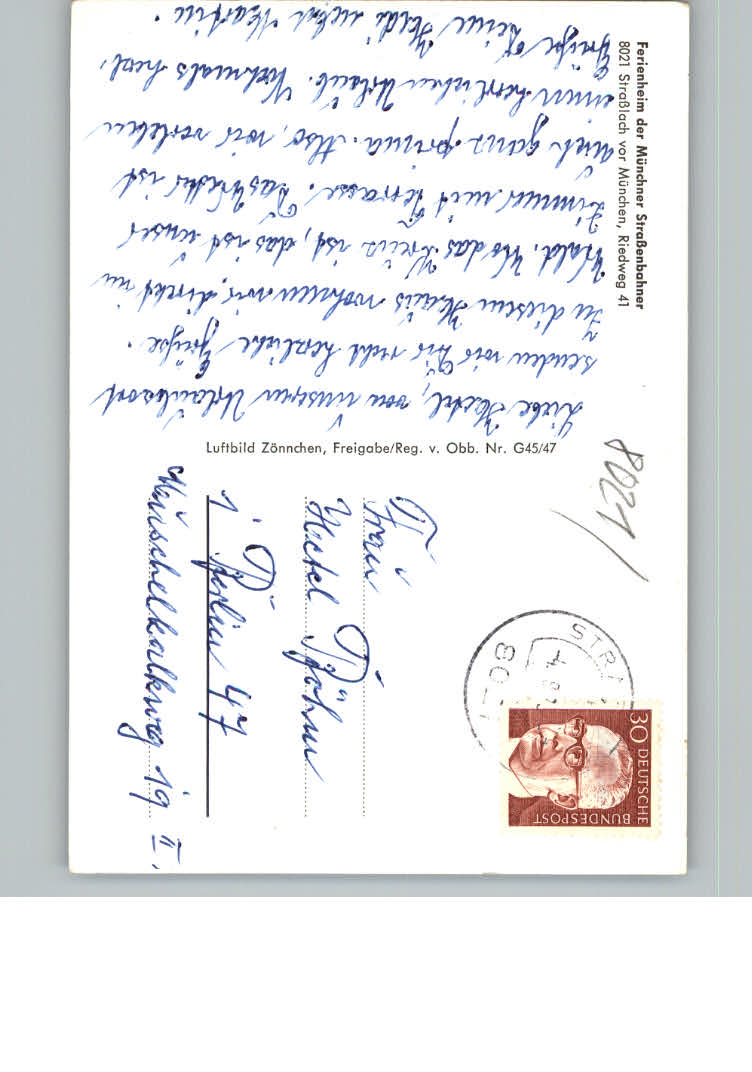 Ferienheim der Münchner Straßenbahner
8021 Straßlach vor München, Riedweg 41
Liebe Hertel, von unserem Urlaubsort
senden wir Dir recht herzliche Grüße.
In diesem Haus wohnen wir, direkt im
Wald. Wo das Kreuz ist, das ist unser
Zimmer mit Terrasse. Das Wetter ist
auch ganz prima. Also, wir verleben
einen herrlichen Urlaub. Nochmals herzl.
Grüße Deine Heidi nebst Martin.
Luftbild Zönnchen, Freigabe/Reg. v. Obb. Nr. G45/47
8021/
8021
STRA
30
DEUTSCHE
BUNDESPOST
Frau
Hertel Böhm
1 Berlin 47
Muschelkalkweg 19 II.